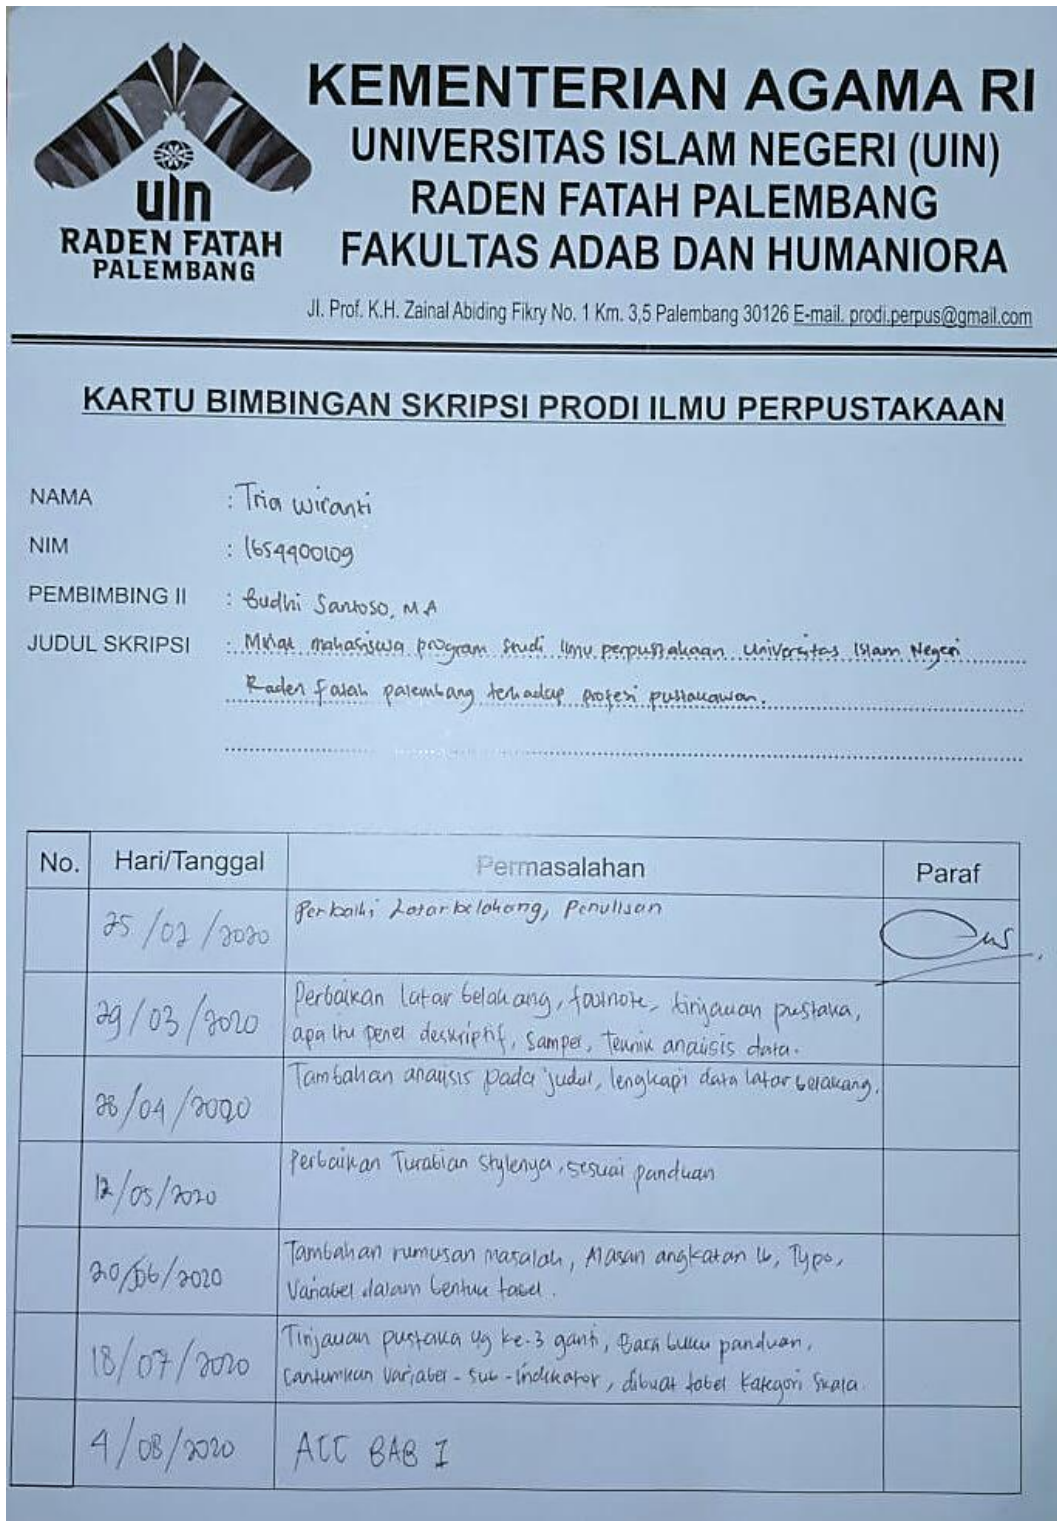 KEMENTERIAN AGAMA RI
UNIVERSITAS ISLAM NEGERI (UIN)
RADEN FATAH PALEMBANG
FAKULTAS ADAB DAN HUMANIORA
uin
RADEN FATAH
PALEMBANG
Jl. Prof. K.H. Zainal Abiding Fikry No. 1 Km. 3,5 Palembang 30126 E-mail. prodi.perpus@gmail.com
KARTU BIMBINGAN SKRIPSI PRODI ILMU PERPUSTAKAAN
NAMA : Tria wiranti
NIM : 1654400109
PEMBIMBING II : Budhi Santoso, M A
JUDUL SKRIPSI : Minat mahasiswa program studi Ilmu perpustakaan Universitas Islam Negeri
Raden fatah palembang terhadap profesi pustakawan.
No. Hari/Tanggal Permasalahan Paraf
25/02/2020 Perbaiki Latar belakang, Penulisan
29/03/2020 Perbaikan latar belakang, footnote, tinjauan pustaka,
apa itu penel deskriptif, sampel, teknik analisis data.
28/04/2020 Tambahan analisis pada judul, lengkapi data latar belakang.
12/05/2020 Perbaikan Turabian Stylenya, sesuai panduan
20/06/2020 Tambahan rumusan masalah, Alasan angkatan 16, Typo,
Variabel dalam bentuk tabel.
18/07/2020 Tinjauan pustaka yg ke-3 ganti, Baca buku panduan,
Cantumkan Variabel - Sub - Indikator, dibuat tabel kategori Skala.
4/08/2020 ACC BAB I